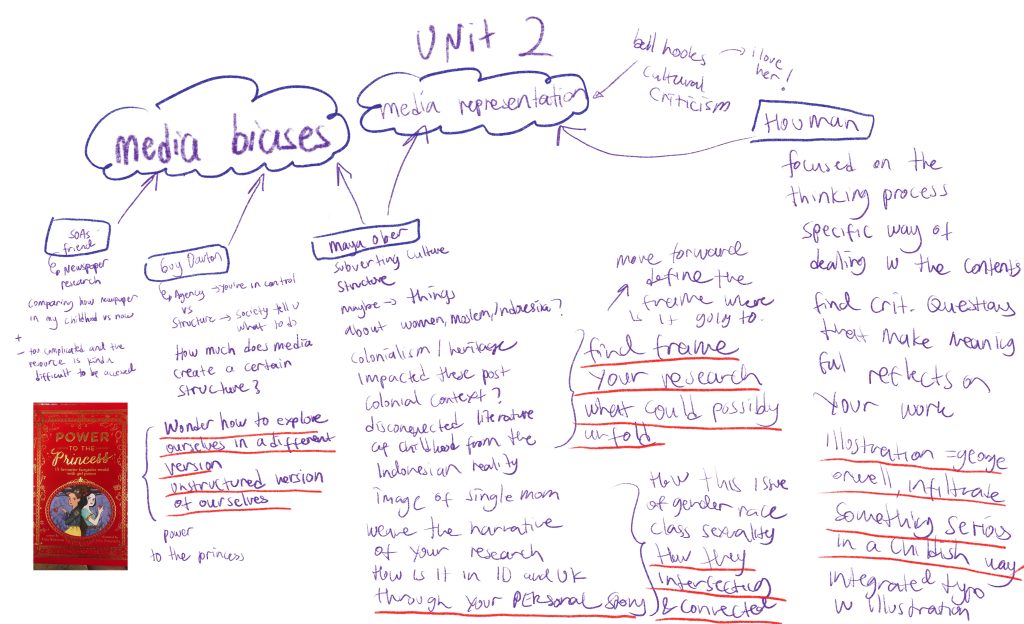 UNit 2
media biases
media representation
bell hooks → i love
her!
cultural
criticism
Houman
focused on the
thinking process
specific way of
dealing w the contents
find crit. Questions
that make meaning
ful reflects on
your work
illustration = george
orwell, infiltrate
something serious
in a childish way
integrated typo
w illustration
SOAs
friend
Newspaper
research
Comparing how newspaper
in my childhood vs now
+
- too complicated and the
resource is kinda
difficult to be accessed
Guy Davton
Agency → you're in control
vs
Structure → society tell u
what to do
How much does media
create a certain
structure?
Wonder how to explore
ourselves in a different
version
unstructured version
of ourselves
power
to the princess
POWER
TO THE
Princess
maya ober
Subverting culture
structure
maybe → things
about women, moslem, Indonesia?
colonialism / heritage
impacted these post
colonial context?
disconnected literature
of childhood from the
Indonesian reality
image of single mom
weave the narrative
of your research
How is it in ID and UK
through your personal story
move forward
define the
frame where
it going to.
find frame
your research
what could possibly
unfold
How this issue
of gender race
class sexuality
How they
intersecting
& connected